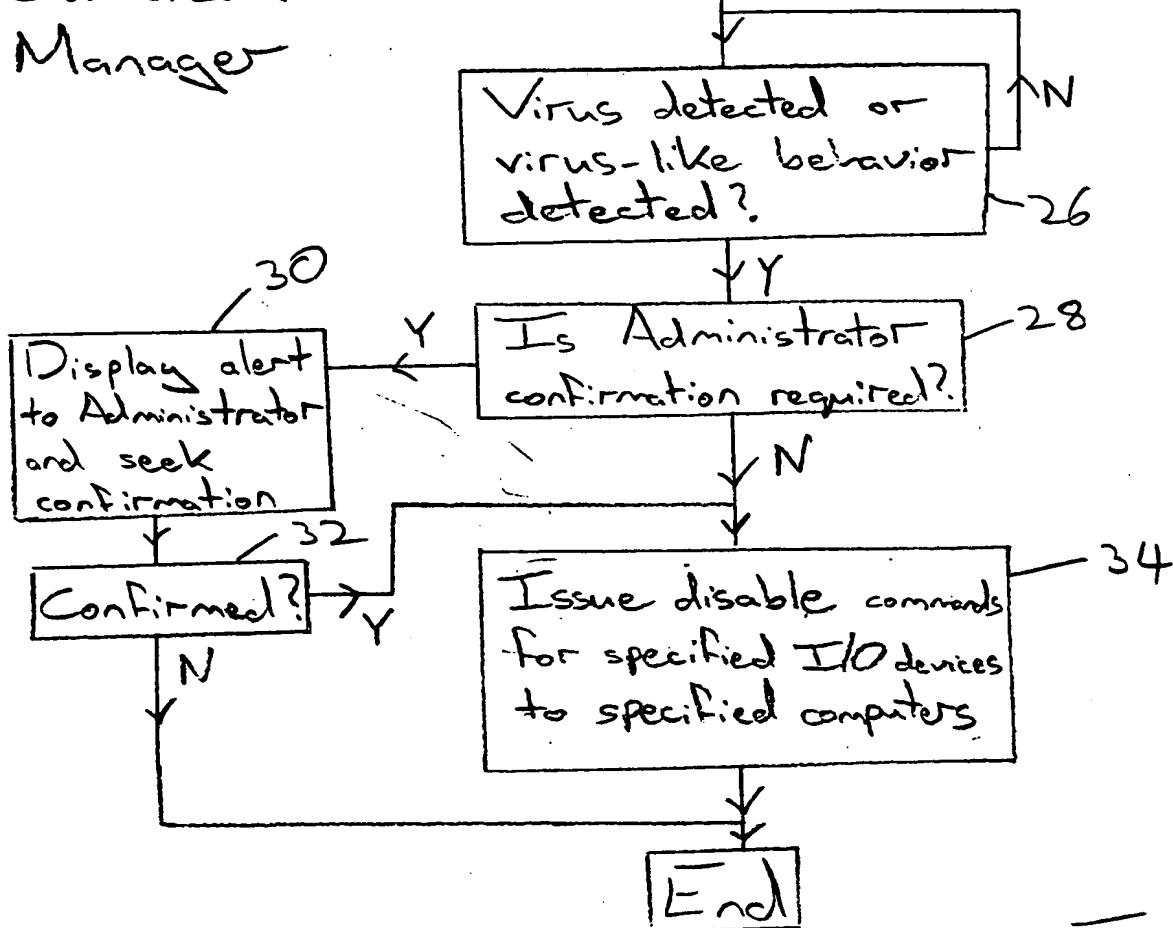 Manager
Virus detected or
virus-like behavior
detected?
N
26
Y
Is Administrator
confirmation required?
28
Y
N
30
Display alert
to Administrator
and seek
confirmation
32
Confirmed?
Y
N
Issue disable commands
for specified I/O devices
to specified computers
34
End